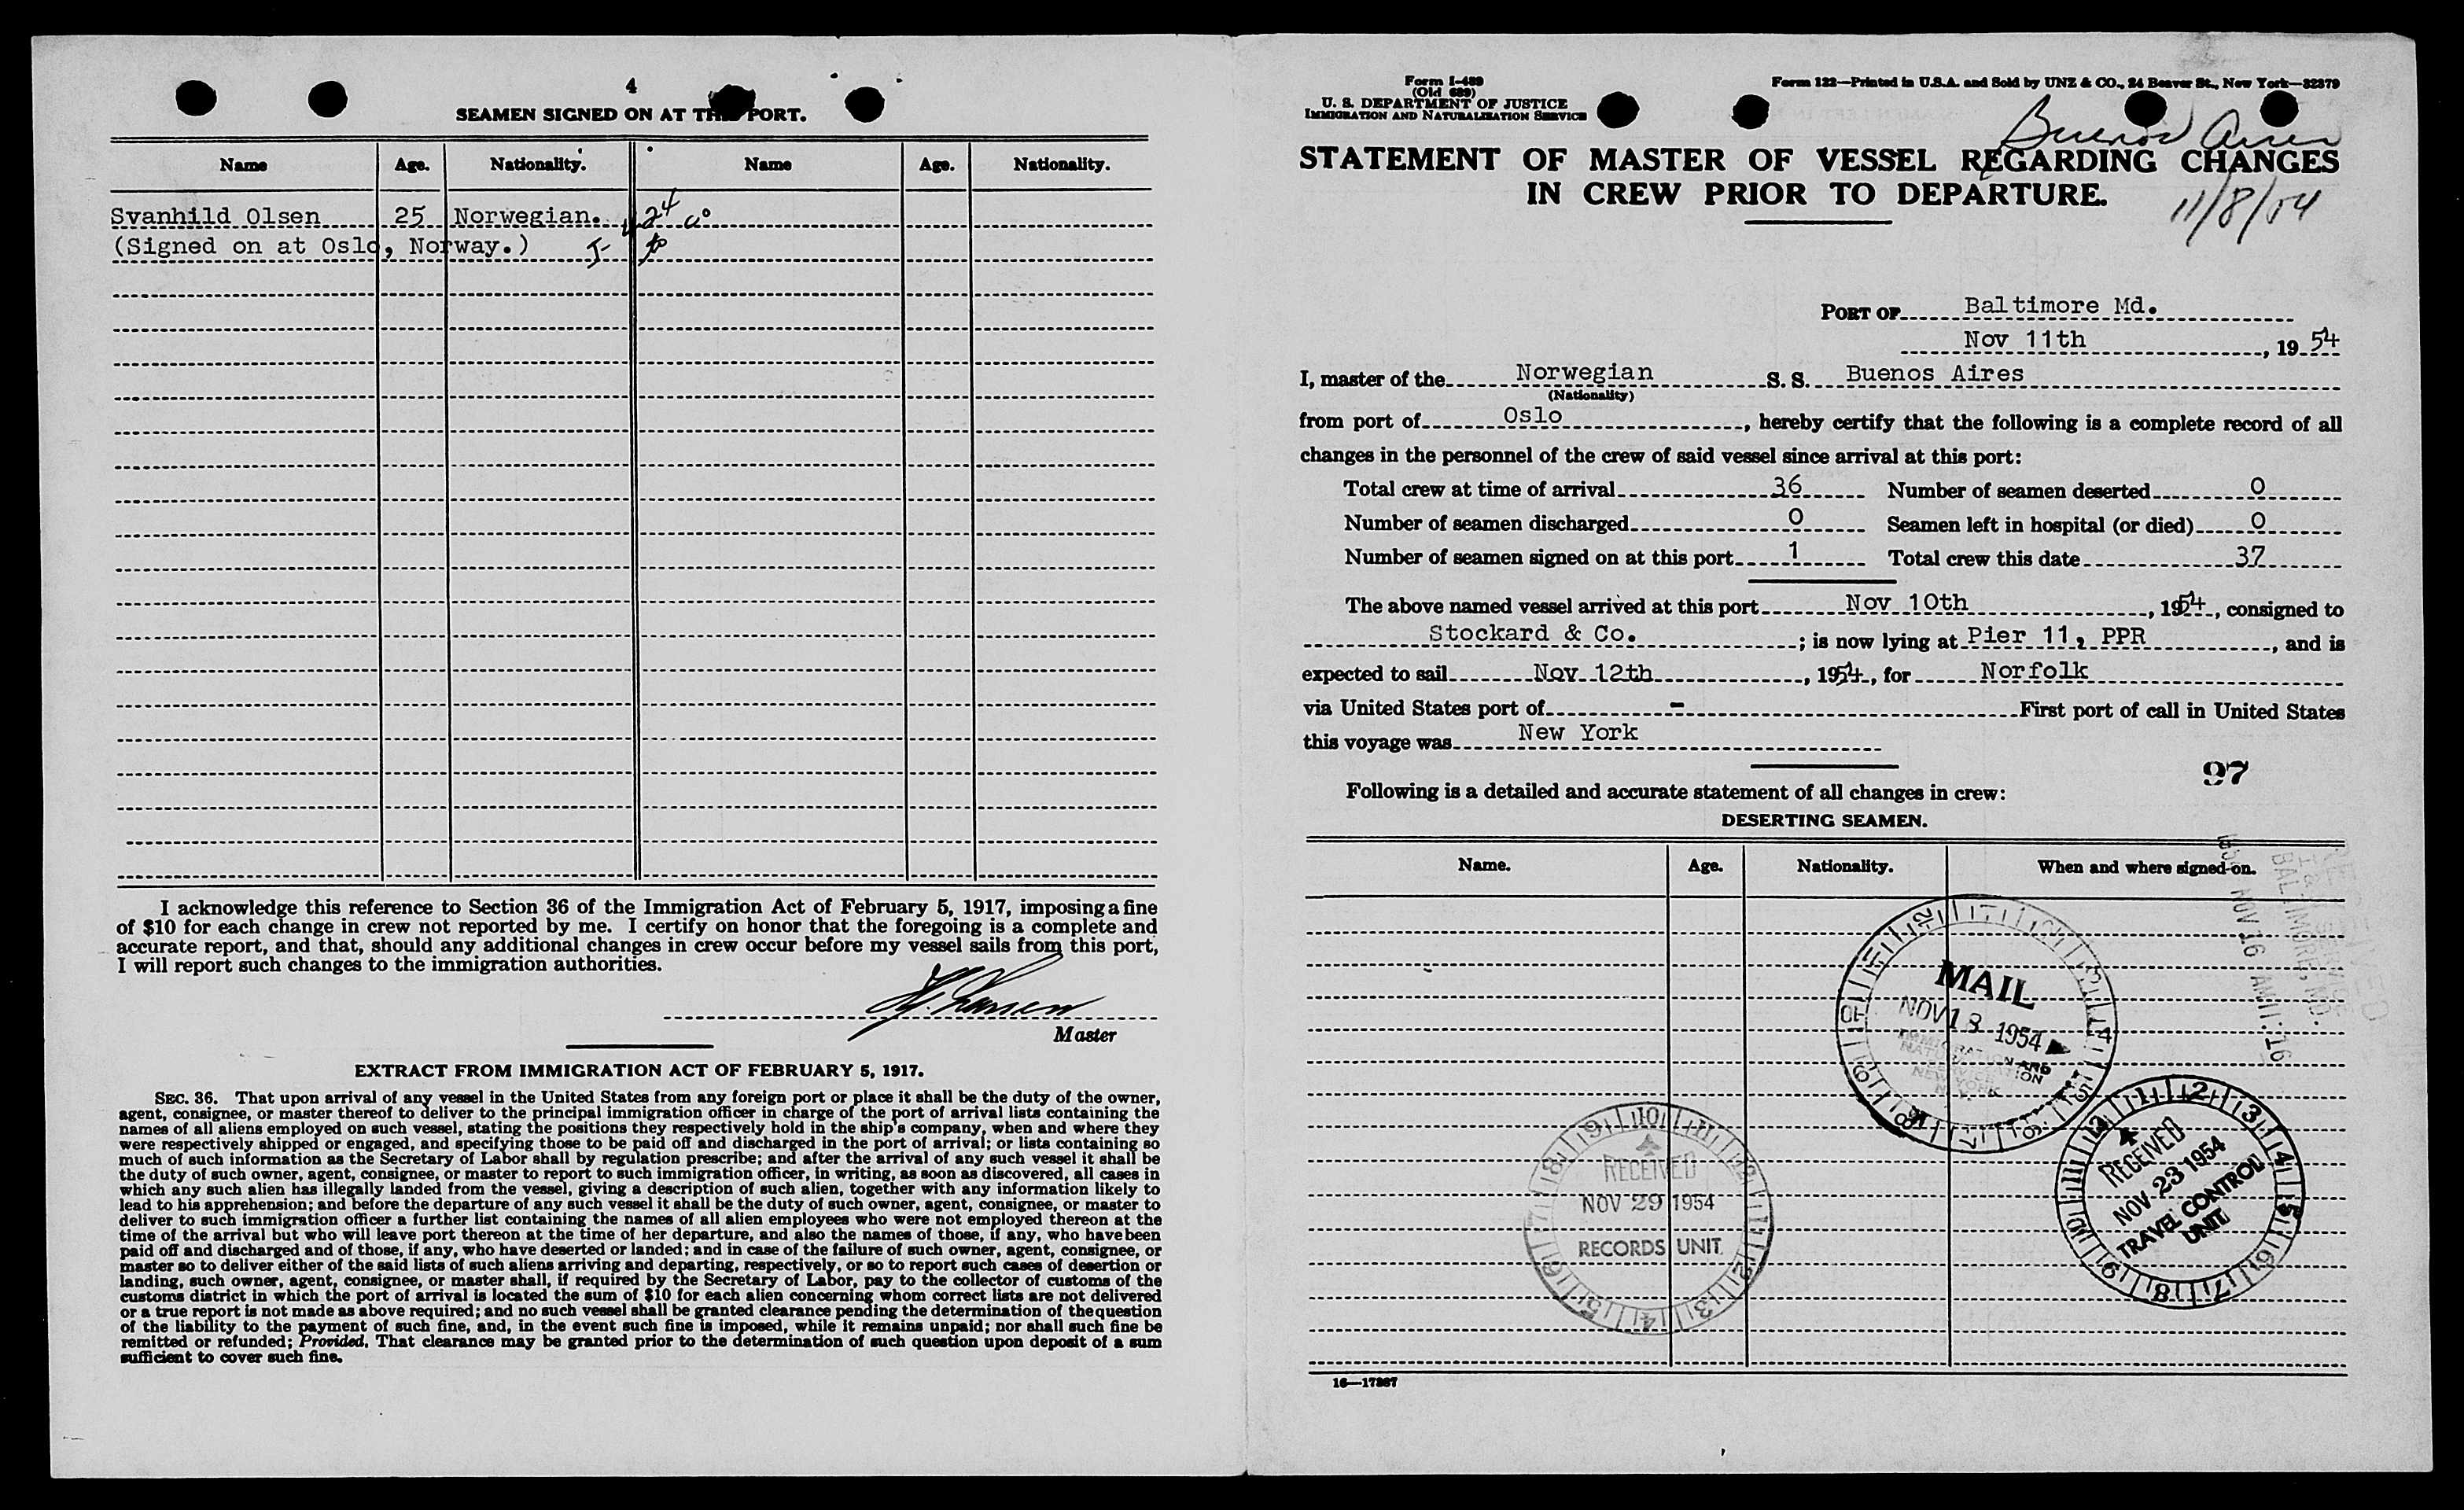 4
SEAMEN SIGNED ON AT THIS PORT.
Name Age. Nationality. Name Age. Nationality.
Svanhild Olsen 25 Norwegian.
(Signed on at Oslo, Norway.)
I acknowledge this reference to Section 36 of the Immigration Act of February 5, 1917, imposing a fine
of $10 for each change in crew not reported by me. I certify on honor that the foregoing is a complete and
accurate report, and that, should any additional changes in crew occur before my vessel sails from this port,
I will report such changes to the immigration authorities.
Master
EXTRACT FROM IMMIGRATION ACT OF FEBRUARY 5, 1917.
SEC. 36. That upon arrival of any vessel in the United States from any foreign port or place it shall be the duty of the owner,
agent, consignee, or master thereof to deliver to the principal immigration officer in charge of the port of arrival lists containing the
names of all aliens employed on such vessel, stating the positions they respectively hold in the ship's company, when and where they
were respectively shipped or engaged, and specifying those to be paid off and discharged in the port of arrival; or lists containing so
much of such information as the Secretary of Labor shall by regulation prescribe; and after the arrival of any such vessel it shall be
the duty of such owner, agent, consignee, or master to report to such immigration officer, in writing, as soon as discovered, all cases in
which any such alien has illegally landed from the vessel, giving a description of such alien, together with any information likely to
lead to his apprehension; and before the departure of any such vessel it shall be the duty of such owner, agent, consignee, or master to
deliver to such immigration officer a further list containing the names of all alien employees who were not employed thereon at the
time of the arrival but who will leave port thereon at the time of her departure, and also the names of those, if any, who have been
paid off and discharged and of those, if any, who have deserted or landed; and in case of the failure of such owner, agent, consignee, or
master so to deliver either of the said lists of such aliens arriving and departing, respectively, or so to report such cases of desertion or
landing, such owner, agent, consignee, or master shall, if required by the Secretary of Labor, pay to the collector of customs of the
customs district in which the port of arrival is located the sum of $10 for each alien concerning whom correct lists are not delivered
or a true report is not made as above required; and no such vessel shall be granted clearance pending the determination of the question
of the liability to the payment of such fine, and, in the event such fine is imposed, while it remains unpaid; nor shall such fine be
remitted or refunded; Provided, That clearance may be granted prior to the determination of such question upon deposit of a sum
sufficient to cover such fine.
Form I-489
(Old 689)
U. S. DEPARTMENT OF JUSTICE
IMMIGRATION AND NATURALIZATION SERVICE
Form 122—Printed in U.S.A. and Sold by UNZ & CO., 24 Beaver St., New York—32379
Buenos Aires
STATEMENT OF MASTER OF VESSEL REGARDING CHANGES
IN CREW PRIOR TO DEPARTURE.
11/8/54
PORT OF Baltimore Md.
Nov 11th, 1954
I, master of the Norwegian S. S. Buenos Aires
(Nationality)
from port of Oslo, hereby certify that the following is a complete record of all
changes in the personnel of the crew of said vessel since arrival at this port:
Total crew at time of arrival 36 Number of seamen deserted 0
Number of seamen discharged 0 Seamen left in hospital (or died) 0
Number of seamen signed on at this port 1 Total crew this date 37
The above named vessel arrived at this port Nov 10th, 1954, consigned to
Stockard & Co.; is now lying at Pier 11, PPR, and is
expected to sail Nov 12th, 1954, for Norfolk
via United States port of - First port of call in United States
this voyage was New York
97
Following is a detailed and accurate statement of all changes in crew:
DESERTING SEAMEN.
Name. Age. Nationality. When and where signed on.
RECEIVED
BALTIMORE, MD.
NOV 16 AM 11:16
MAIL
NOV 18 1954
IMMIGRATION AND
NATURALIZATION
NEW YORK
RECEIVED
NOV 23 1954
TRAVEL CONTROL
UNIT
RECEIVED
NOV 29 1954
RECORDS UNIT
16—17267